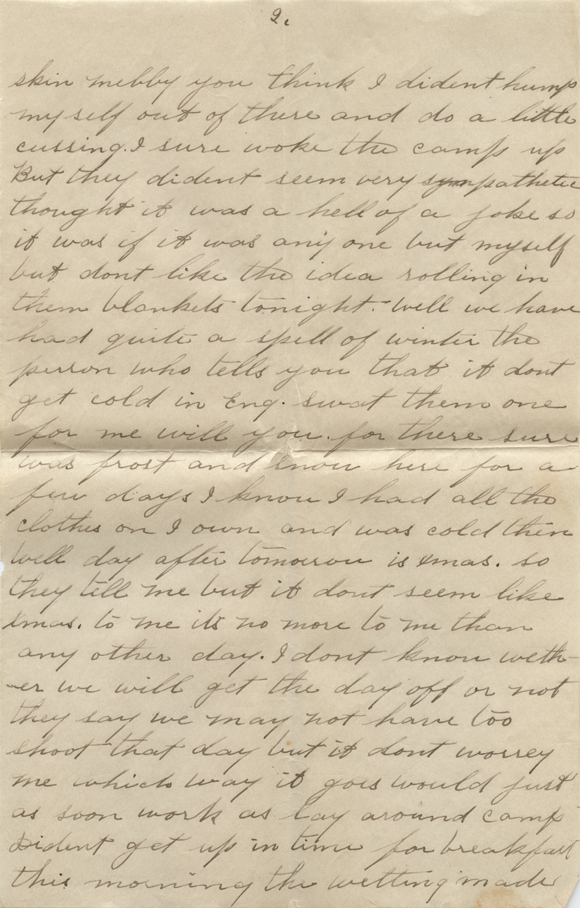 2.
skin mebby you think I dident hump
myself out of there and do a little
cussing. I sure woke the camp up
But they dident seem very sympathetic
thought it was a hell of a joke so
it was if it was any one but myself
but dont like the idea rolling in
them blankets tonight. Well we have
had quite a spell of winter the
person who tells you that it dont
get cold in Eng. swat them one
for me will you. for there sure
was frost and snow here for a
few days I know I had all the
clothes on I own and was cold then
Well day after tomorrow is xmas. so
they tell me but it dont seem like
xmas. to me its no more to me than
any other day. I dont know weth-
-er we will get the day off or not
they say we may not have too
shoot that day but it dont worrey
me which way it goes would just
as soon work as lay around camp
Dident get up in time for breakfast
this morning the wetting made